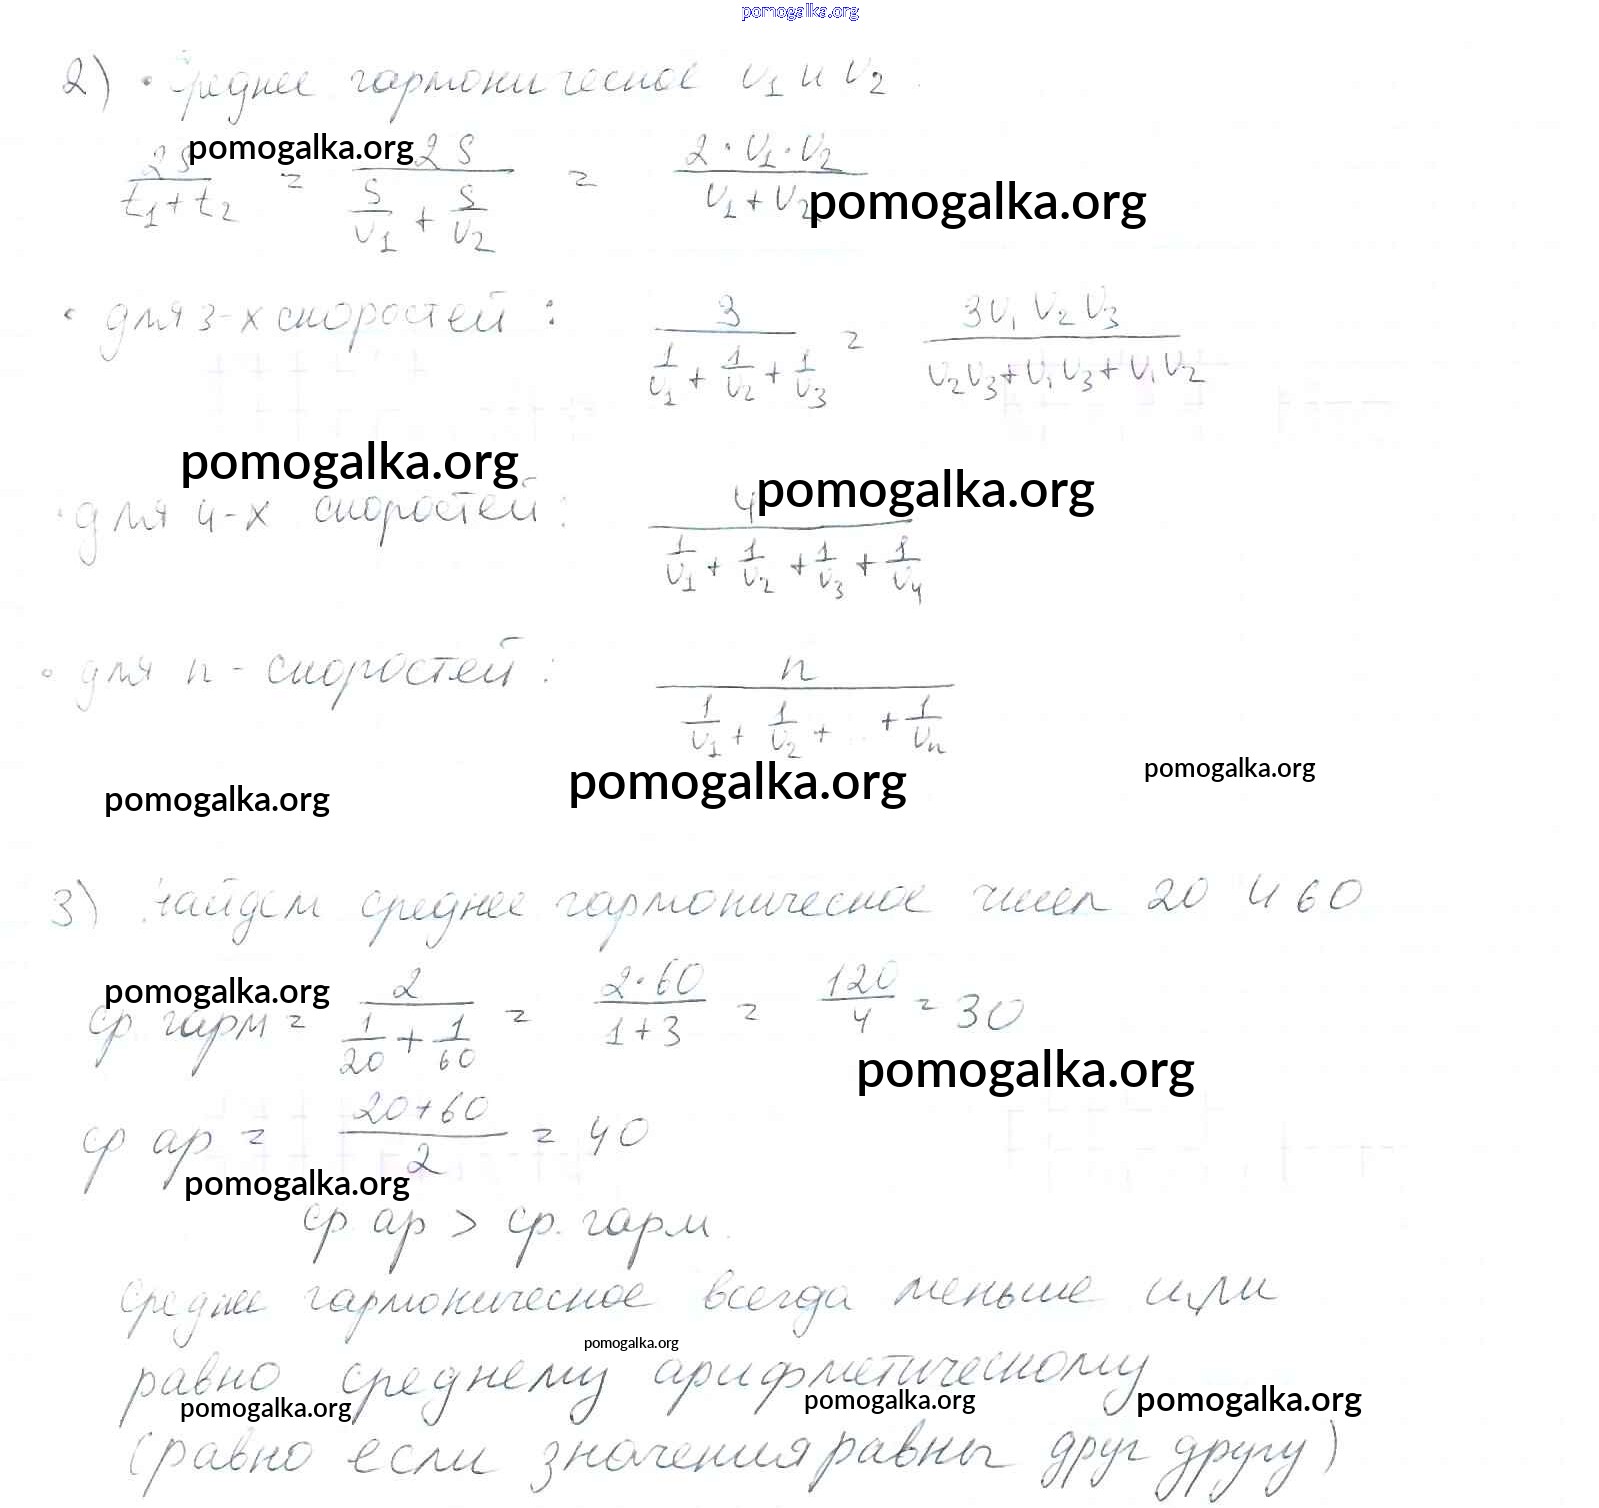 pomogalka.org
2) • Среднее гармоническое v₁ и v₂
2S/(t₁+t₂) = 2S/(S/v₁ + S/v₂) = 2·v₁·v₂/(v₁+v₂)
pomogalka.org
pomogalka.org
• для 3-х скоростей: 3/(1/v₁ + 1/v₂ + 1/v₃) = 3v₁v₂v₃/(v₂v₃+v₁v₃+v₁v₂)
pomogalka.org
pomogalka.org
• для 4-х скоростей: 4/(1/v₁ + 1/v₂ + 1/v₃ + 1/v₄)
• для n-скоростей: n/(1/v₁ + 1/v₂ + ... + 1/vₙ)
pomogalka.org
pomogalka.org
pomogalka.org
3) Найдем среднее гармоническое чисел 20 и 60
pomogalka.org
ср. гарм = 2/(1/20 + 1/60) = 2·60/(1+3) = 120/4 = 30
pomogalka.org
ср ар = (20+60)/2 = 40
pomogalka.org
ср ар > ср. гарм.
Среднее гармоническое всегда меньше или
pomogalka.org
равно среднему арифметическому
pomogalka.org
pomogalka.org
pomogalka.org
(равно если значения равны друг другу)